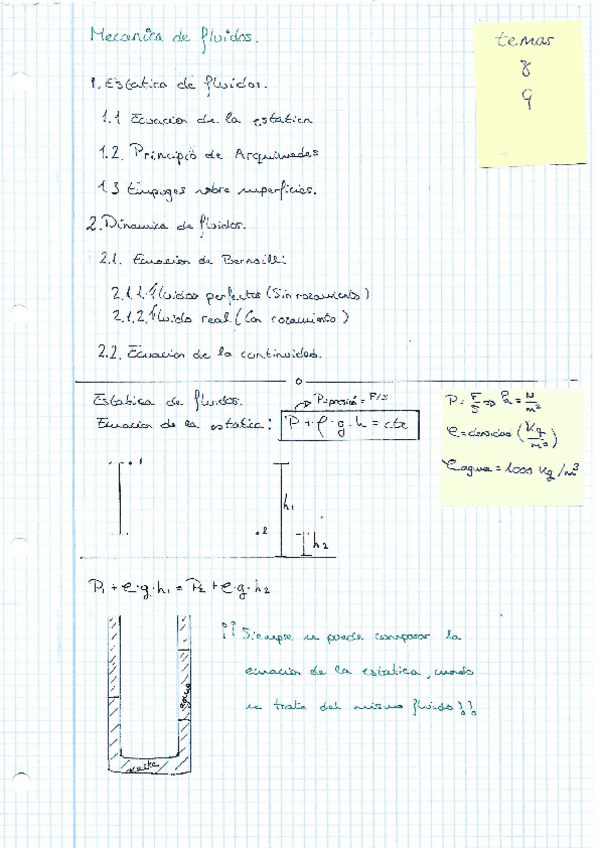 Mecanica de fluidos.
temas
8
9
1. Estatica de fluidos.
1.1 Ecuacion de la estatica
1.2. Principio de Arquimedes
1.3 Empujes sobre superficies.
2. Dinamica de fluidos.
2.1. Ecuacion de Bernoilli:
2.1.1. Fluidos perfectos (Sin rozamiento)
2.1.2. Fluido real (Con rozamiento)
2.2. Ecuacion de la continuidad.
Estatica de fluidos.
P=presión = F/S
Ecuacion de la estatica: P + ρ·g·h = cte
P = F/S => Pa = N/m²
ρ = densidad (Kg/m³)
ρagua = 1000 Kg/m³
·1
h1
·2
h2
P1 + ρ·g·h1 = P2 + ρ·g·h2
¡¡Siempre se puede comparar la
ecuacion de la estatica, cuando
se trata del mismo fluido!!
agua
aceite